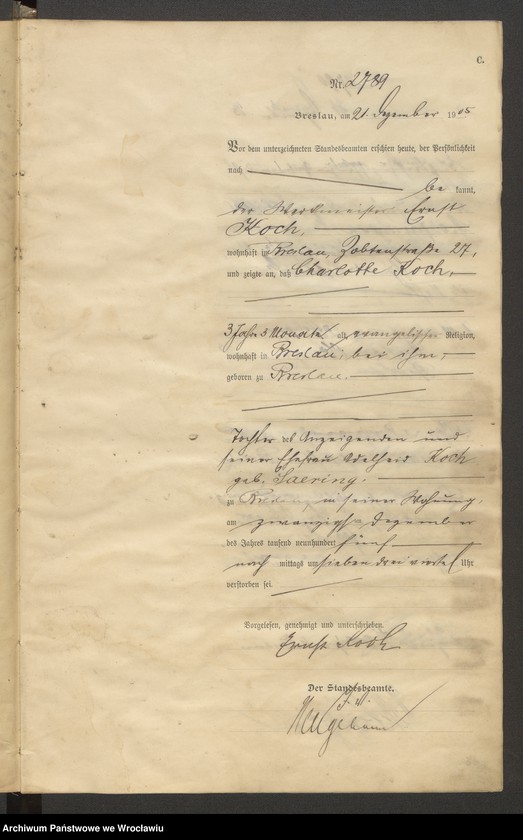 C.
Nr. 2789
Breslau, am 21. Dezember 1905
Vor dem unterzeichneten Standesbeamten erschien heute, der Persönlichkeit
nach be kannt,
der Werkmeister Ernst
Koch,
wohnhaft in Breslau, Zobtenstraße 27,
und zeigte an, daß Charlotte Koch,
3 Jahre 3 Monate alt, evangelischer Religion,
wohnhaft in Breslau, bei ihm,
geboren zu Breslau.
Tochter des Anzeigenden und
seiner Ehefrau Adelheid Koch
geb. Saering.
zu Breslau, in seiner Wohnung,
am zwanzigsten Dezember
des Jahres tausend neunhundert fünf
nach mittags um sieben drei viertel Uhr
verstorben sei.
Vorgelesen, genehmigt und unterschrieben.
Ernst Koch
Der Standesbeamte.
Archiwum Państwowe we Wrocławiu